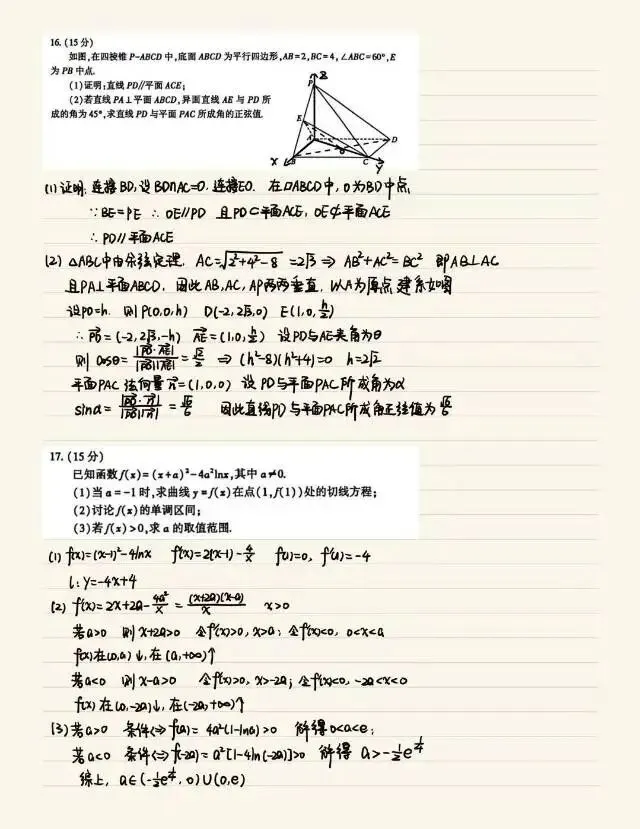 16. (15分)
如图,在四棱锥 P-ABCD 中,底面 ABCD 为平行四边形,AB=2,BC=4,∠ABC=60°,E
为 PB 中点.
(1)证明:直线 PD//平面 ACE;
(2)若直线 PA⊥平面 ABCD,异面直线 AE 与 PD 所
成的角为45°,求直线 PD 与平面 PAC 所成角的正弦值.
Z
P
E
A
D
O
X
B
C
Y
(1)证明: 连接BD,设BD∩AC=O. 连接EO. 在▱ABCD中,O为BD中点,
∵BE=PE ∴OE//PD 且PD⊂平面ACE, OE⊄平面ACE
∴PD//平面ACE
(2) △ABC中由余弦定理. AC=√2²+4²-8 =2√3 ⇒ AB²+AC²=BC² 即AB⊥AC
且PA⊥平面ABCD. 因此AB,AC,AP两两垂直. 以A为原点建系如图
设PD=h. 则P(0,0,h) D(-2,2√3,0) E(1,0,h/2)
∴PD=(-2,2√3,-h) AE=(1,0,h/2) 设PD与AE夹角为θ
则 cosθ=|PD·AE|/|PD||AE|=√2/2 ⇒(h²-8)(h²+4)=0 h=2√2
平面PAC法向量n=(1,0,0) 设PD与平面PAC所成角为α
sinα=|PD·n|/|PD||n|=√6/6 因此直线PD与平面PAC所成角正弦值为√6/6
17. (15分)
已知函数 f(x)=(x+a)²-4a²lnx,其中 a≠0.
(1)当 a=-1 时,求曲线 y=f(x)在点(1,f(1))处的切线方程;
(2)讨论 f(x)的单调区间;
(3)若 f(x)>0,求 a 的取值范围.
(1) f(x)=(x-1)²-4lnx f'(x)=2(x-1)-4/x f(1)=0, f'(1)=-4
l: y=-4x+4
(2) f'(x)=2x+2a-4a²/x=(x+2a)(x-a)/x x>0
若a>0 则x+2a>0 令f'(x)>0, x>a; 令f'(x)<0, 0<x<a
f(x)在(0,a)↓,在(a,+∞)↑
若a<0 则x-a>0 令f'(x)>0, x>-2a; 令f'(x)<0, -2a<x<0
f(x)在(0,-2a)↓,在(-2a,+∞)↑
(3)若a>0 条件⇔f(a)=4a²(1-lna)>0 解得0<a<e;
若a<0 条件⇔f(-2a)=a²[1-4ln(-2a)]>0 解得 a>-½e^¼
综上, a∈(-½e^¼,0)∪(0,e)